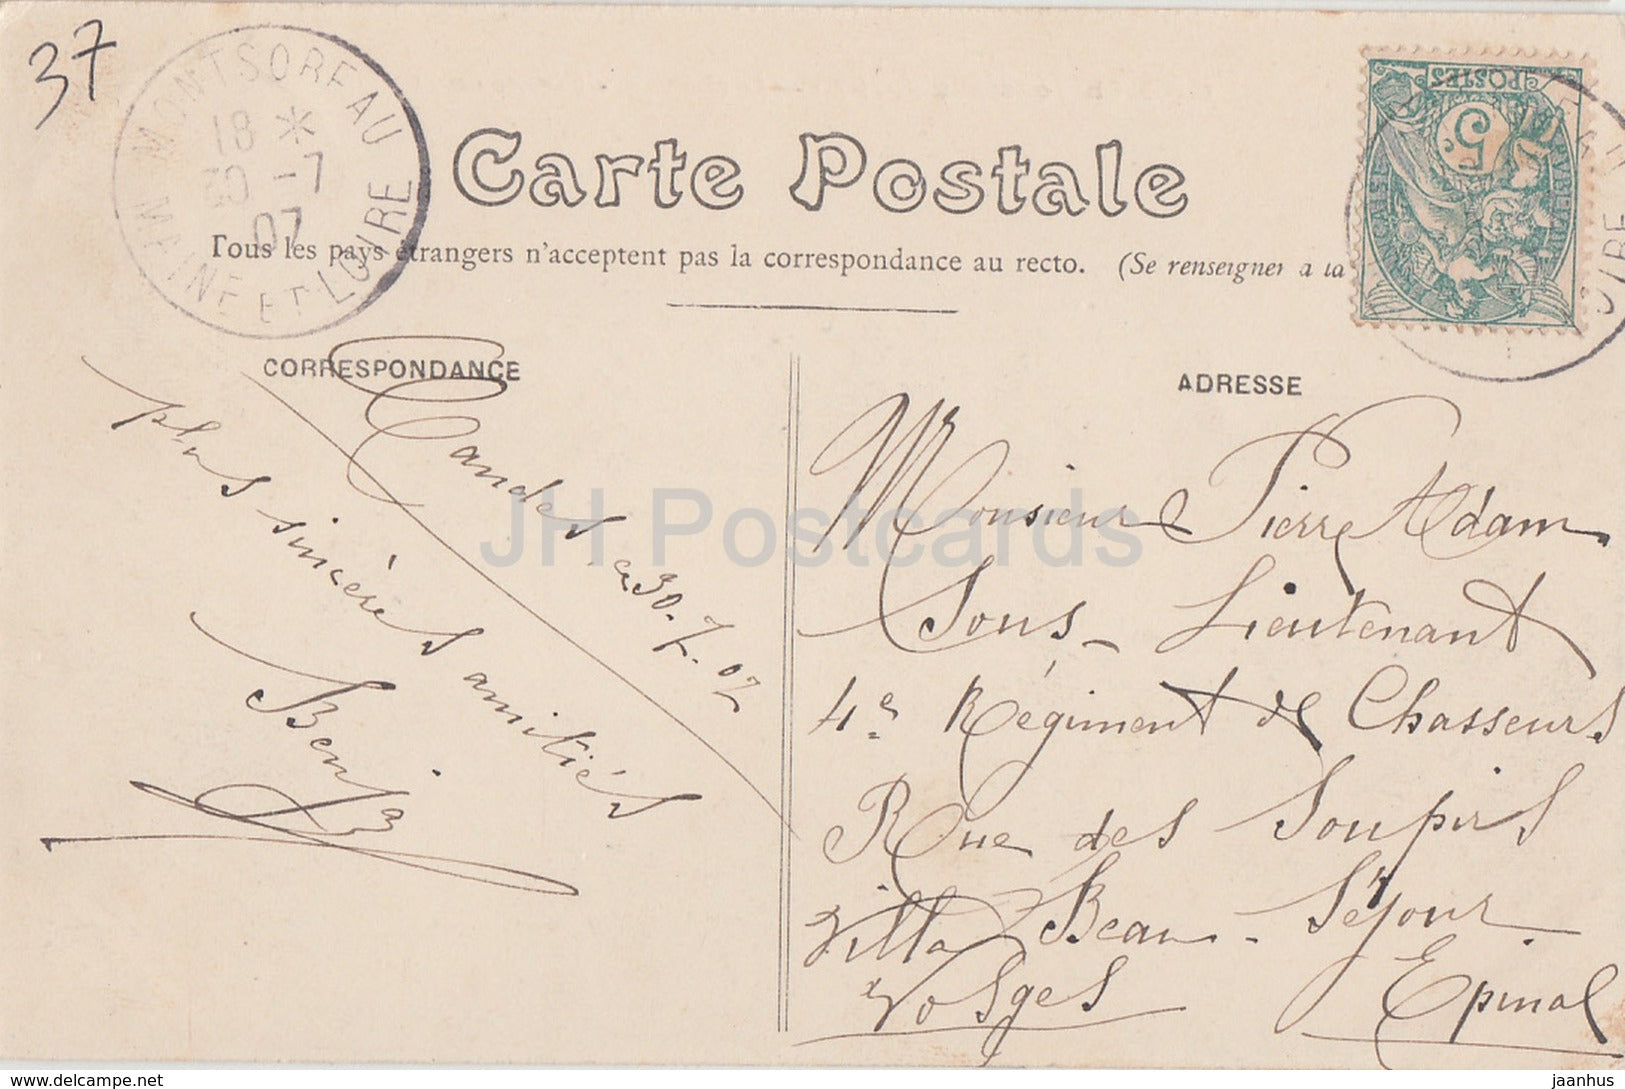 37
MONTSOREAU
18 *
30 -7
07
MAINE ET LOIRE
Carte Postale
Tous les pays étrangers n'acceptent pas la correspondance au recto. (Se renseigner à la
POSTES
5
OIRE
CORRESPONDANCE
ADRESSE
Candes ce 30.7.07
plus sincères amitiés
Benj
Monsieur Pierre Adam
Sous-Lieutenant
4e Régiment de Chasseurs
Rue des Soupirs
Villa Beau-Séjour.
Epinal
Vosges
JH Postcards
jaanhus